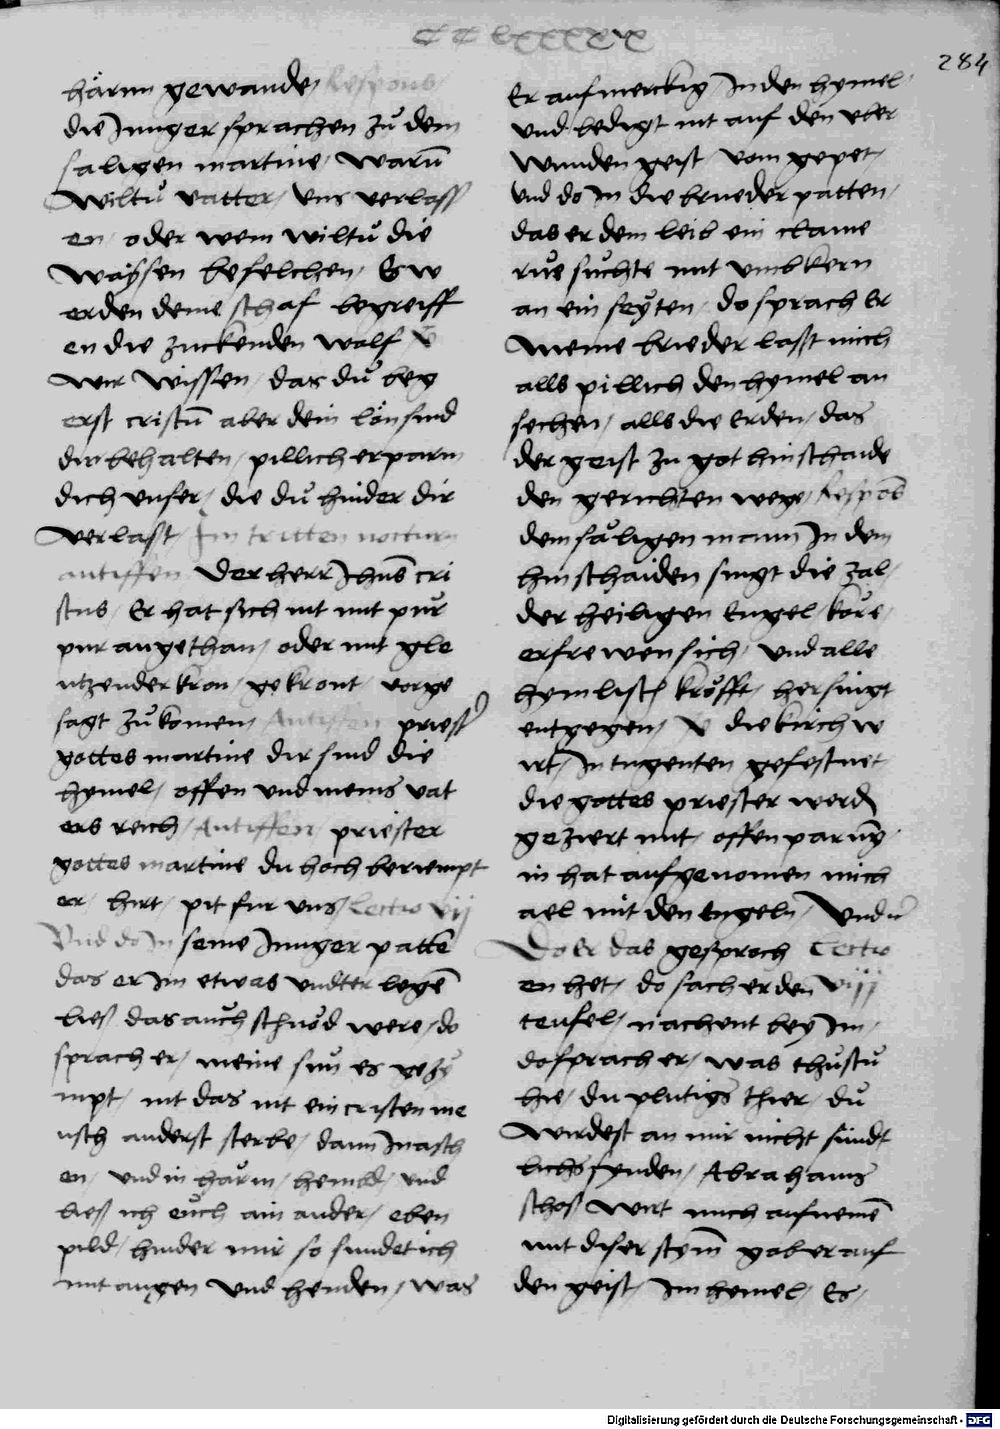 CC lxxxxix
284
härim gewande / Respons /
die Junger sprachen zů dem
saligen martine / Warū
Wiltů vatter / vns verlass
en / oder wem wiltů die
Waÿsen befelchen / Es w
erden deine schaf begreiff
en die zuckenden wolf / V̄
Wir Wissen / das dů beg
erst cristū aber dein lön sind
dir behalten / pillich erparm
dich vnser / die dů hinder dir
verlast / Im tritten nocturn
antiffen Der herr Jhus cri
stus / Er hat sich nit mit pur
pur angethan / oder mit gle
ntzender kron / gekront / vorge
sagt zů komen / Antiffen priest
gottes martine dir sind die
hymel / offen vnd meins vat
ers reich / Antiffen priester
gottes martine du hoch beriempt
er / hirt / pit fur vns / Lectio vij
Vnd do In seine Junger patte
das er Im etwas vndter legē
lies das auch schnöd were / do
sprach er / meine sun es gezy
mpt / nit das nit ein cristen me
nsch anderst sterbe / dann In asch
en / vnd in härin / hemdd / vnd
lies ich eüch ain ander / eben
pild / hinder mir so sundet ich
mit augen vnd henden / was
Er aufmerckig / In den hymel /
vnd bedigt nit auf den vber
wunden geist / vom gepet /
vnd do In die brueder patten /
das er dem leib ein claine
rue sůchte mit vmbkern
an ein seÿten / do sprach Er
meine brieder lasst mich
alls pillich den hymel an
sechen / alls die Erden / das
der geist zu got hinschaide
den gerichten wege / Respōs
dem säligen mann In dem
hinschaiden singt die zal /
der heiligen Engel / köre /
erfrewen sich / vnd alle
hymlisch kröfft / her singt
entgegen / V die kirch w
irt / In tugenten gefestnet
die gottes priester werdn
geziert mit / offenparūg /
in hat aufgenomen mich
ael mit den Engeln / Vnd
Do Er das gesproch Lectio
en het / do sach er den viij
teufel / nachent bey Im /
do sprach er / was thůstů
hie / du plutigs thier / dů
Wirdest an mir nicht sündt
lichs fynden / Abrahams
schos wirt mich aufnemē
mit diser stym̄ gab er auf
den geist / Im hemel / Es /
Digitalisierung gefördert durch die Deutsche Forschungsgemeinschaft - DFG